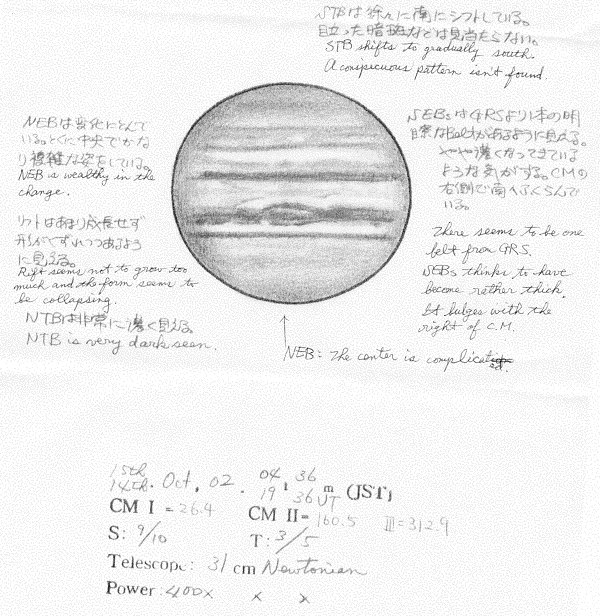 STBは徐々に南にシフトしている。
目立った暗斑などは見当たらない。
STB shifts to gradually south.
A conspicuous pattern isn't found.
NEBは変化にとんで
いる。とくに中央でかな
り複雑な姿をしている。
NEB is wealthy in the
change.
リフトはあまり成長せず
形がくずれつつあるよう
に見える。
Rift seems not to grow too
much and the form seems to
be collapsing.
NTBは非常に濃く見える。
NTB is very dark seen.
SEBsはGRSより1本の明
瞭なBeltがあるように見える。
やや濃くなってきている
ような気がする。CMの
右側で南へふくらんで
いる。
There seems to be one
belt from GRS.
SEBs thinks to have
become rather thick.
It bulges with the
right of C.M.
NEB: The center is complicated.
15th 04 36
14th. Oct, 02. 19 h 36 m UT (JST)
CM I = 26.4 CM II = 160.5 III = 312.9
S: 9/10 T: 3/5
Telescope: 31 cm Newtonian
Power: 400x x x